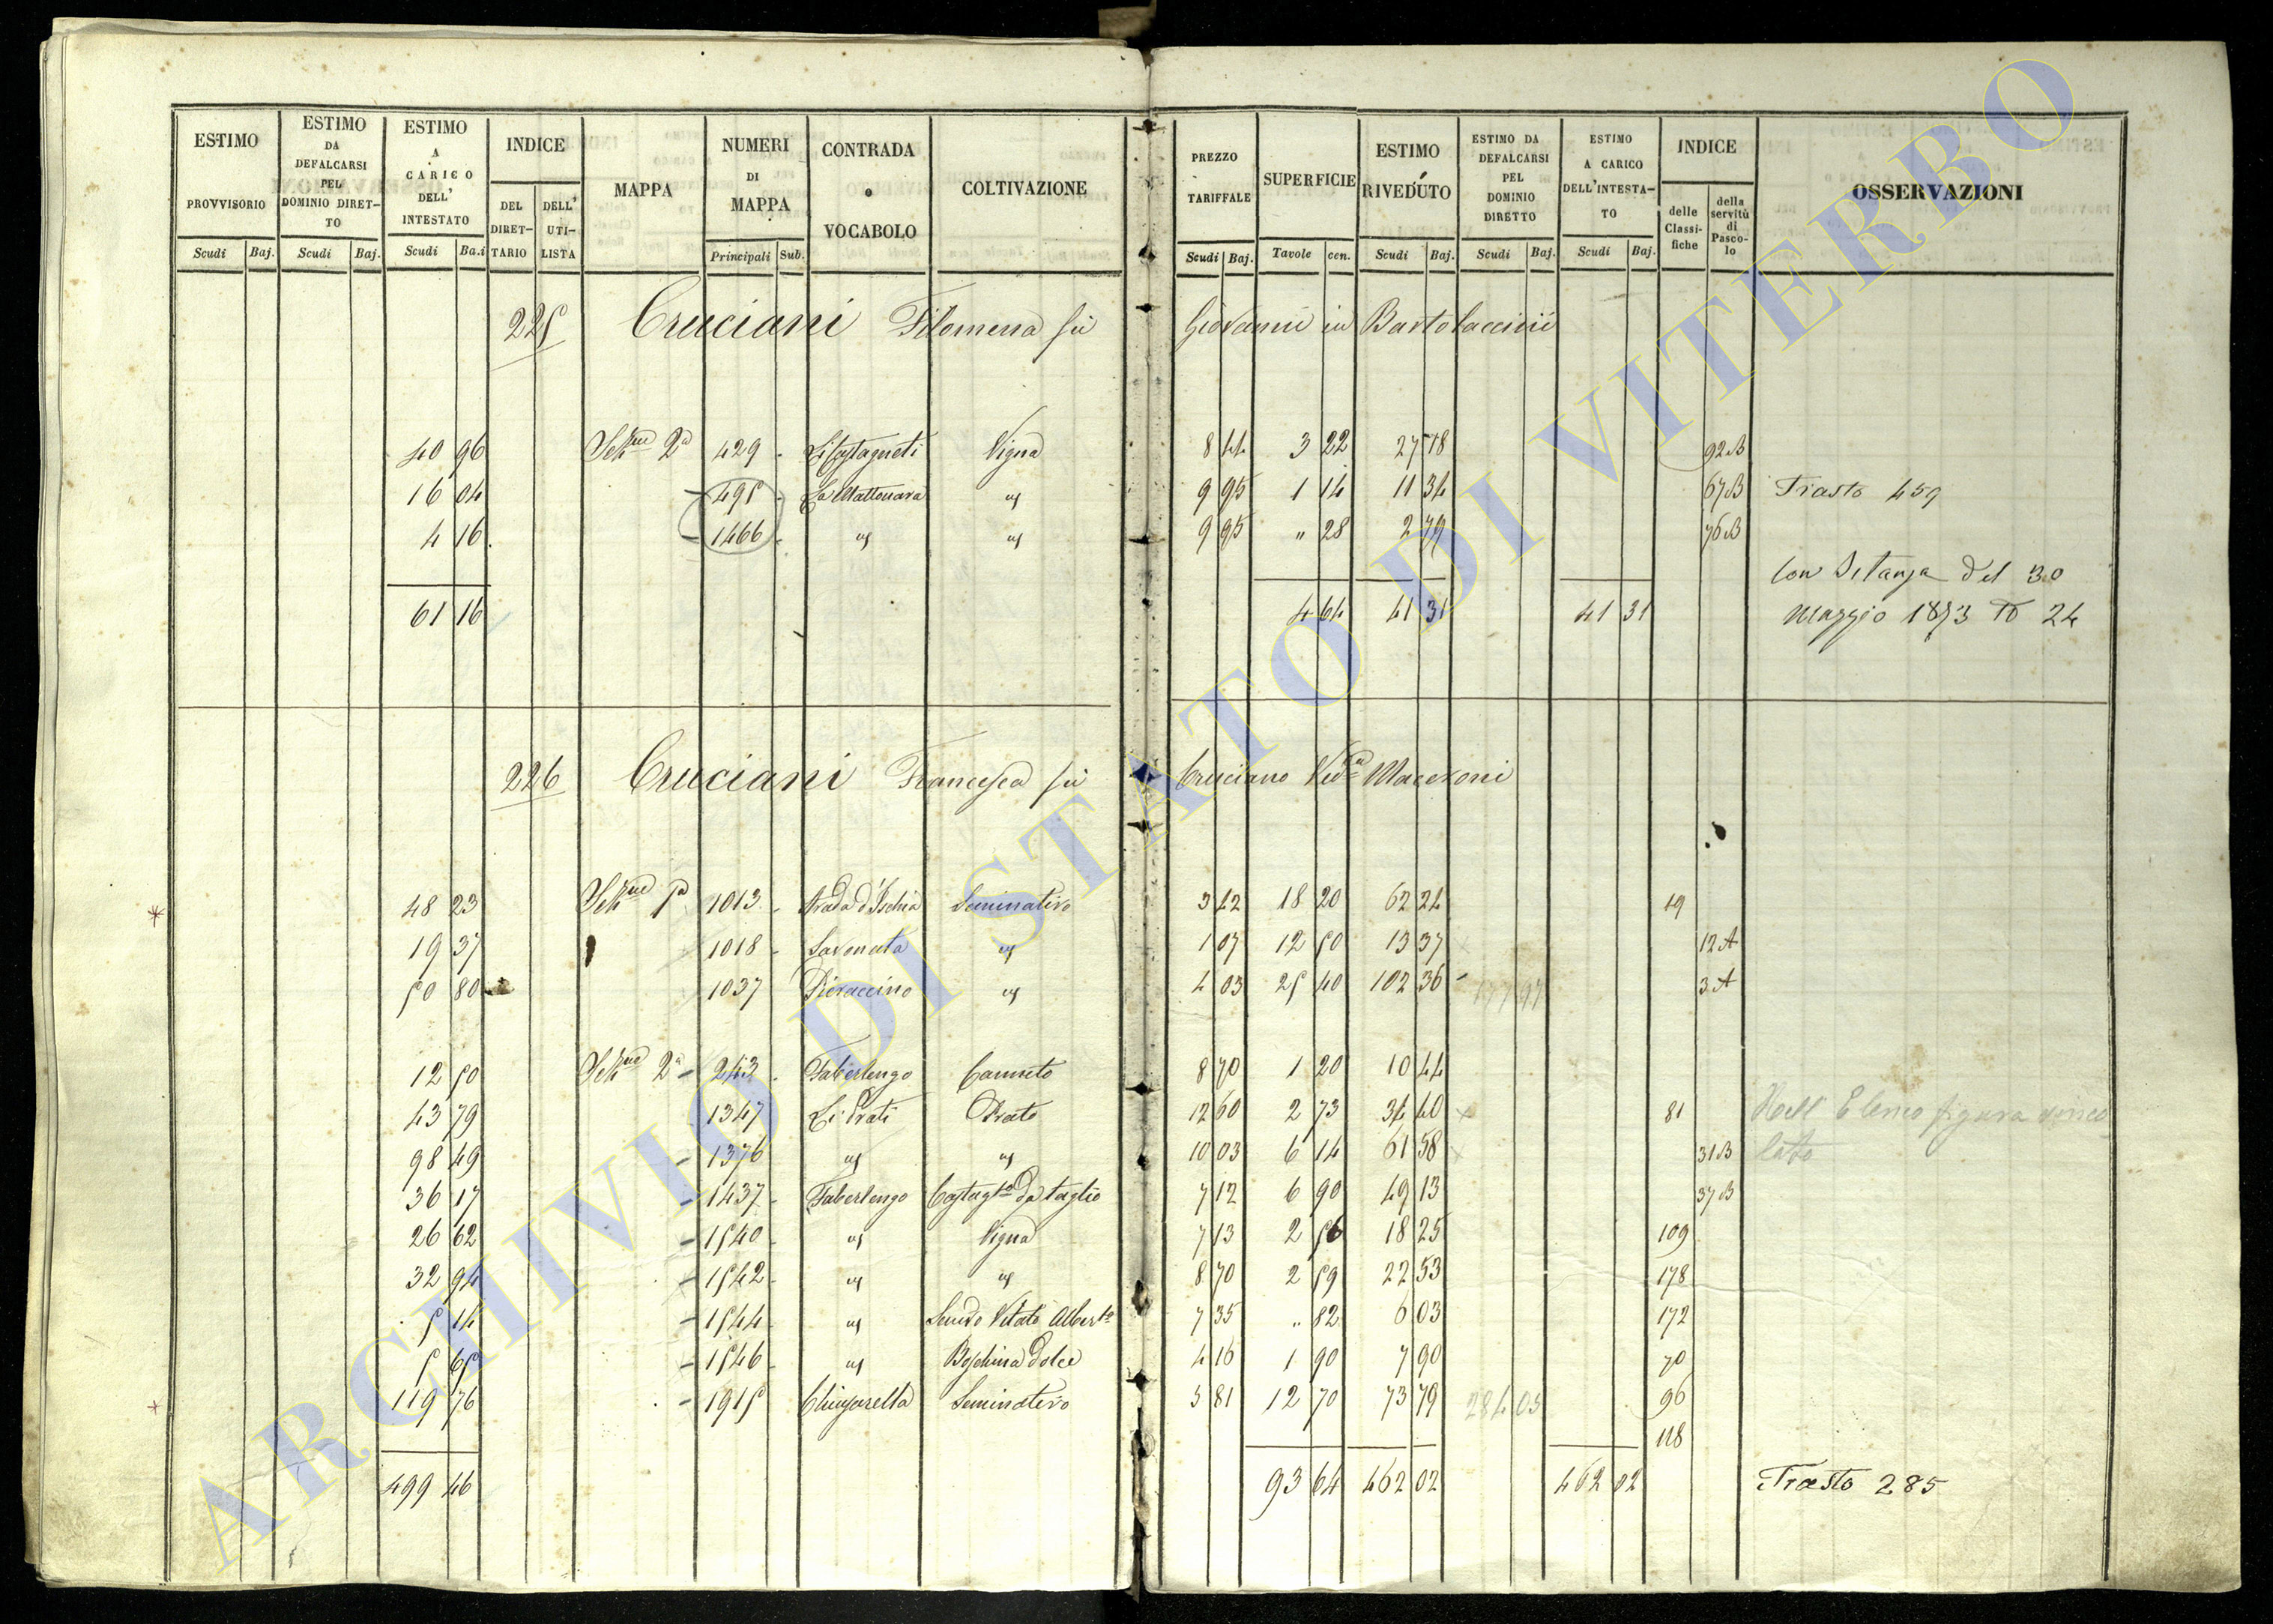 ESTIMO PROVVISORIO Scudi Baj. ESTIMO DA DEFALCARSI PEL DOMINIO DIRETTO Scudi Baj. ESTIMO A CARICO DELL' INTESTATO Scudi Ba.i INDICE DEL DIRETTARIO DELL' UTILISTA MAPPA NUMERI DI MAPPA Principali Sub. CONTRADA o VOCABOLO COLTIVAZIONE PREZZO TARIFFALE Scudi Baj. SUPERFICIE Tavole cen. ESTIMO RIVEDUTO Scudi Baj. ESTIMO DA DEFALCARSI PEL DOMINIO DIRETTO Scudi Baj. ESTIMO A CARICO DELL'INTESTATO Scudi Baj. INDICE delle Classifiche della servitù di Pascolo OSSERVAZIONI
225 Cruciani Filomena fù Giovanni in Bartolaccini
40 96 Sekne 2a 429 Li Castagneti Vigna 8 44 3 22 27 18 92B
16 04 495 La Mattonara us 9 95 1 14 11 34 67B Trasto 459
4 16 1466 us us 9 95 " 28 2 79 76B
Con Istanza del 30
61 16 4 64 41 31 41 31 Maggio 1873 N 24
226 Cruciani Francesca fù Cruciano Veda Macezoni
48 23 Sekne 1a 1013 Strada d'Ischia Seminativo 3 42 18 20 62 24 19
19 37 1018 Savonata us 1 07 12 50 13 37 12A
50 80 1037 Pieraccino us 4 03 25 40 102 36 177 97 3A
12 50 Sekne 2a 243 Faberlengo Canneto 8 70 1 20 10 44
43 79 1347 Li Prati Prato 12 60 2 73 34 40 81 Nell Elenco figura vinco
98 49 1376 us us 10 03 6 14 61 58 31B lato
36 17 1437 Faberlengo Castagto da taglio 7 12 6 90 49 13 37B
26 62 1540 us Vigna 7 13 2 56 18 25 109
32 94 1542 us us 8 70 2 59 22 53 178
5 14 1544 us Semivo Vitato Alberto 7 35 " 82 6 03 172
5 65 1546 us Boschina dolce 4 16 1 90 7 90 70
119 76 1915 Chiusarella Seminativo 5 81 12 70 73 79 284 05 96
118
499 46 93 64 462 02 462 02 Trasto 285
ARCHIVIO DI STATO DI VITERBO